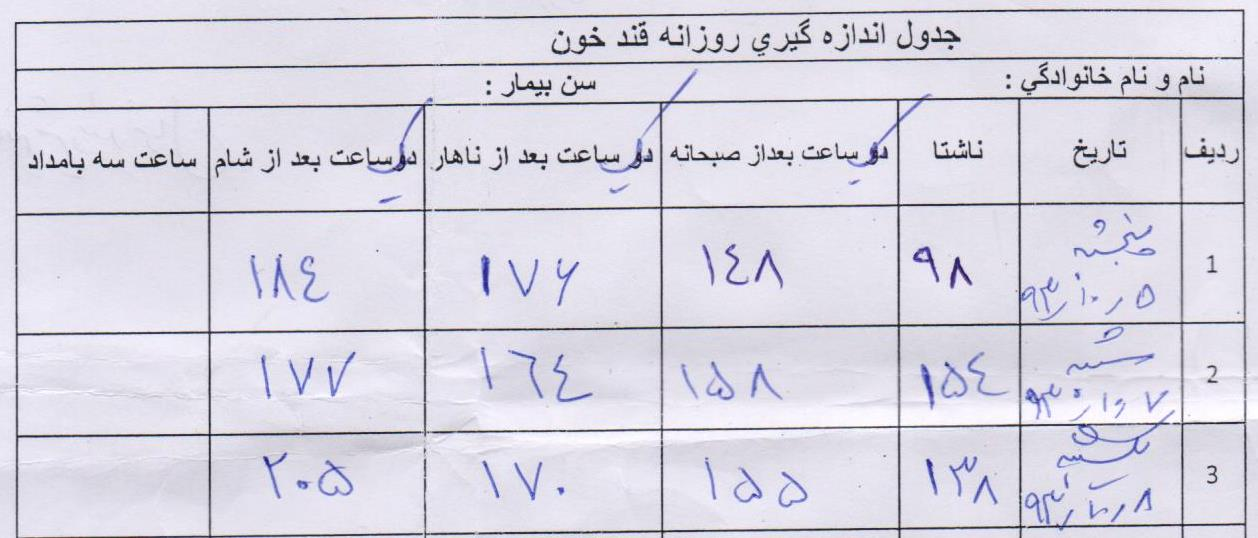 جدول اندازه گيري روزانه قند خون
نام و نام خانوادگي : سن بيمار :
رديف تاريخ ناشتا دو ساعت بعداز صبحانه دو ساعت بعد از ناهار دوساعت بعد از شام ساعت سه بامداد
1 پنجشنبه ۹۸ ۱٤۸ ۱۷۶ ۱۸٤
2 شنبه ۱۵٤ ۱۵۸ ۱٦٤ ۱۷۷
3 یکشنبه ۱۳۸ ۱۵۵ ۱۷۰ ۲۰۵